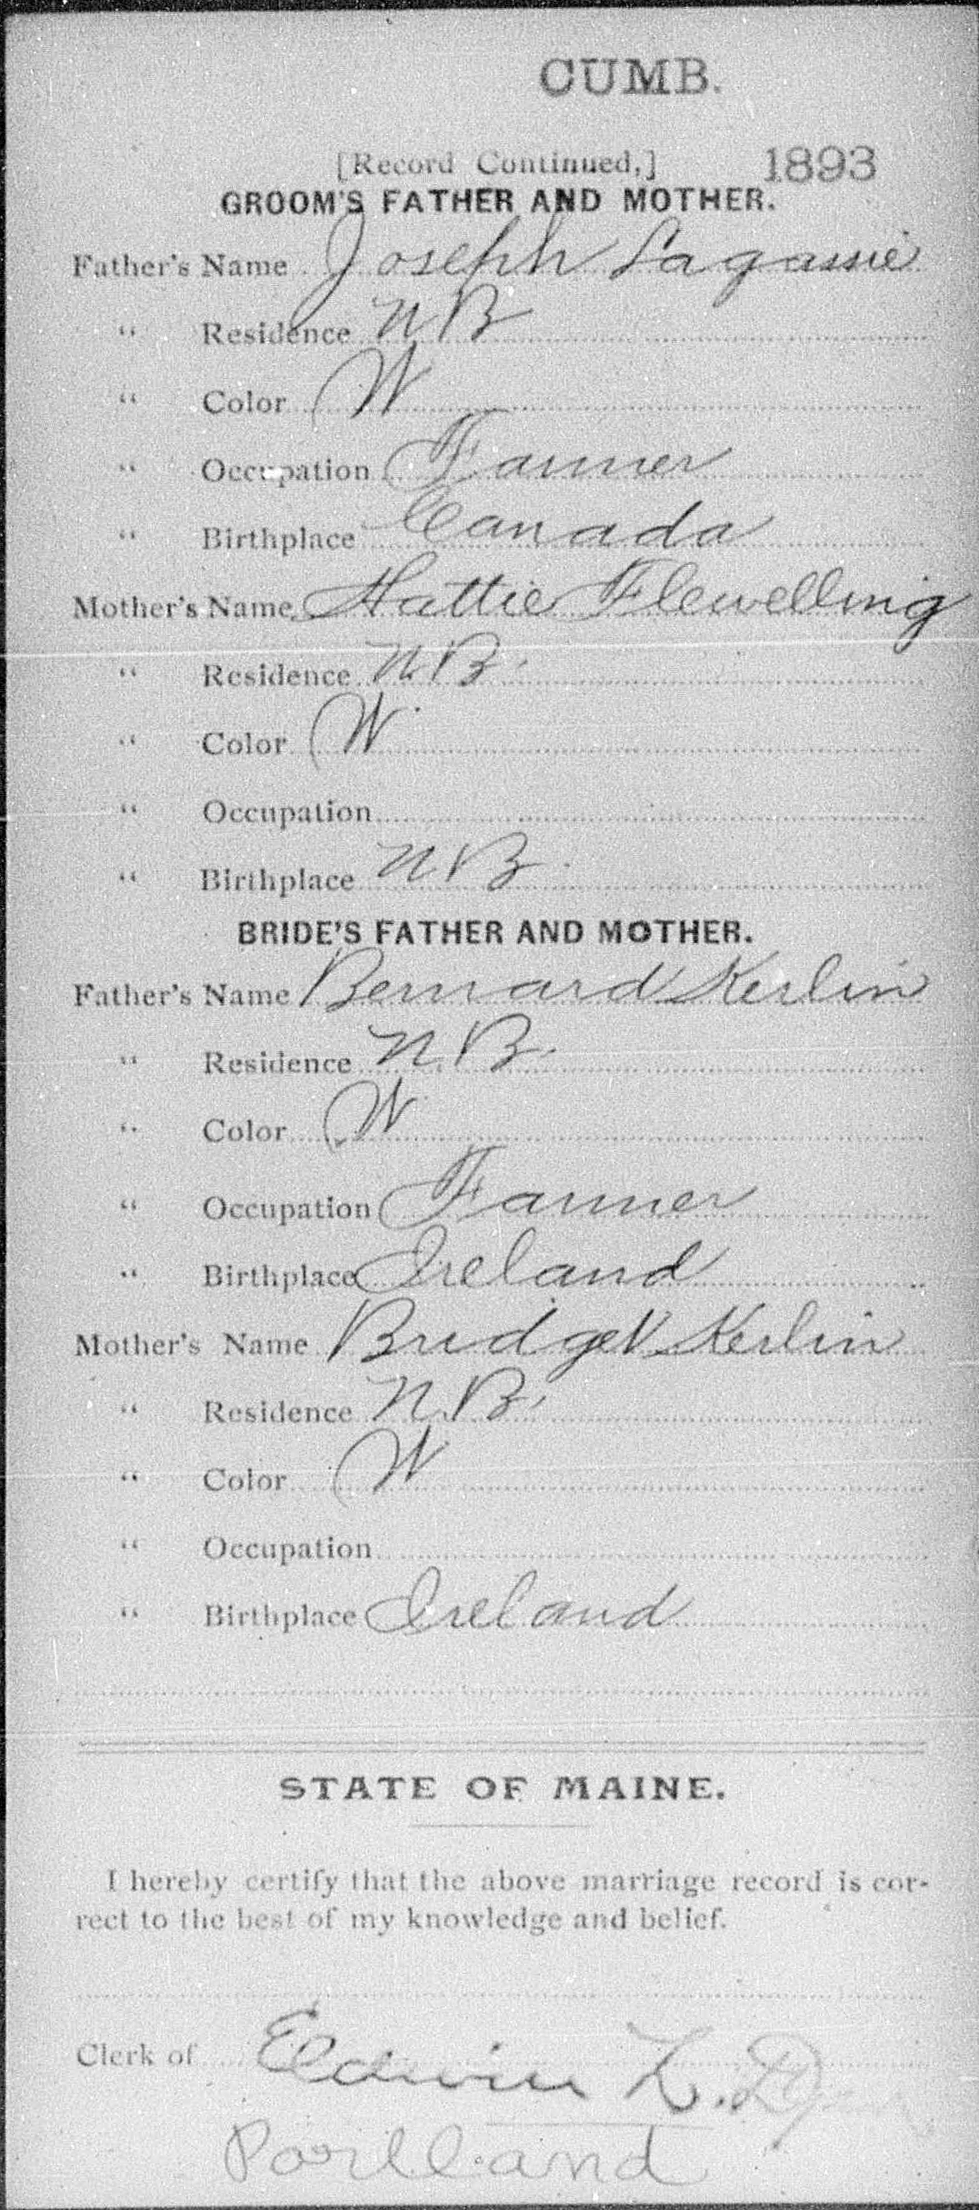 CUMB.
[Record Continued,] 1893
GROOM'S FATHER AND MOTHER.
Father's Name Joseph Lagassie
" Residence N B
" Color W
" Occupation Farmer
" Birthplace Canada
Mother's Name Hattie Flewelling
" Residence N.B.
" Color W.
" Occupation
" Birthplace N B.
BRIDE'S FATHER AND MOTHER.
Father's Name Bernard Kerlin
" Residence N.B.
" Color W
" Occupation Farmer
" Birthplace Ireland
Mother's Name Bridget Kerlin
" Residence N.B.
" Color W
" Occupation
" Birthplace Ireland
STATE OF MAINE.
I hereby certify that the above marriage record is cor-
rect to the best of my knowledge and belief.
Clerk of Edwin L. Dyer
Portland